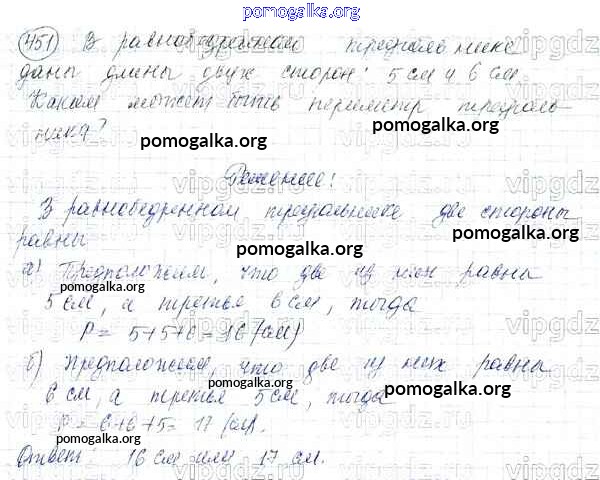 pomogalka.org
451) В равнобедренном треугольнике
даны длины двух сторон: 5 см и 6 см.
Каким может быть периметр треуголь-
ника?
pomogalka.org
pomogalka.org
Решение:
В равнобедренном треугольнике две стороны
равны
pomogalka.org
а) Предположим, что две из них равны
pomogalka.org
5 см, а третья 6 см, тогда
pomogalka.org
P = 5+5+6 = 16 (см)
б) Предположим, что две из них равны
pomogalka.org
pomogalka.org
6 см, а третья 5 см, тогда
P = 6+6+5 = 17 (см).
pomogalka.org
Ответ: 16 см или 17 см.